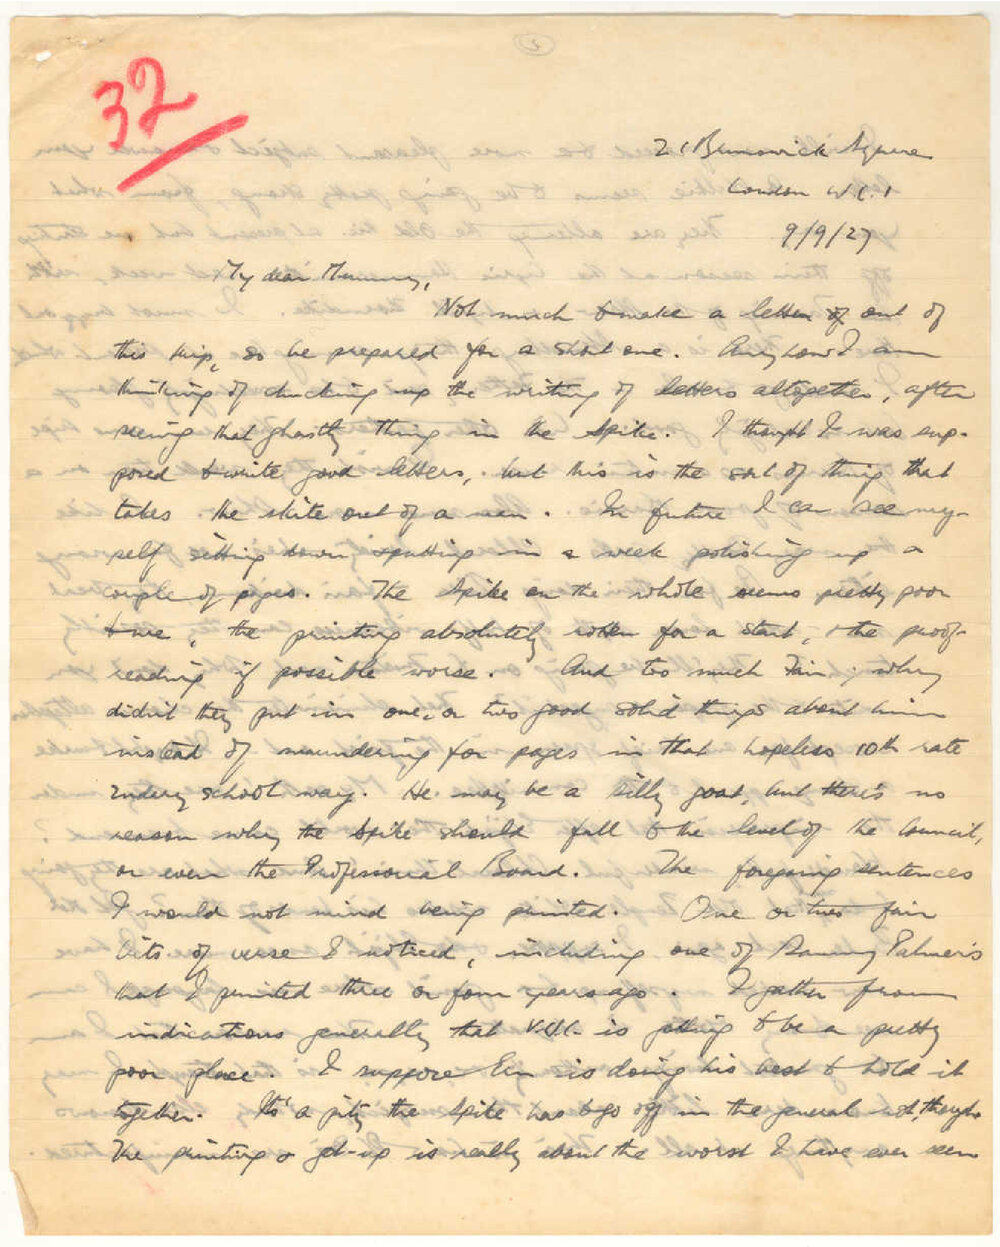 32
21 Brunswick Square
London W.C.1
9/9/27
My dear Mummy,
Not much to make a letter of out of
this trip, so be prepared for a short one. Anyhow I am
thinking of chucking up the writing of letters altogether, after
seeing that ghastly thing in the Spike. I thought I was sup-
posed to write good letters, but this is the sort of thing that
takes the skite out of a man. In future I can see my-
self sitting down, spending a week polishing up a
couple of pages. The Spike on the whole seems pretty poor
to me, the printing absolutely rotten for a start, & the proof-
reading if possible worse. And too much ; why
didn't they put in one or two good solid things about him
instead of maundering for pages in that hopeless 10th rate
Sunday school way. He may be a silly goat, but there's no
reason why the Spike should fall to the level of the Council,
or even the Professorial Board. The foregoing sentences
I would not mind being printed. One or two fair
bits of verse I noticed, including one of Sammy Palmer's
that I printed three or four years ago. I gather from
indications generally that V.U.C. is getting to be a pretty
poor place. I suppose Ern is doing his best to hold it
together. It's a pity the Spike has to go off in the general rot, though.
The printing & get-up is really about the worst I have ever seen